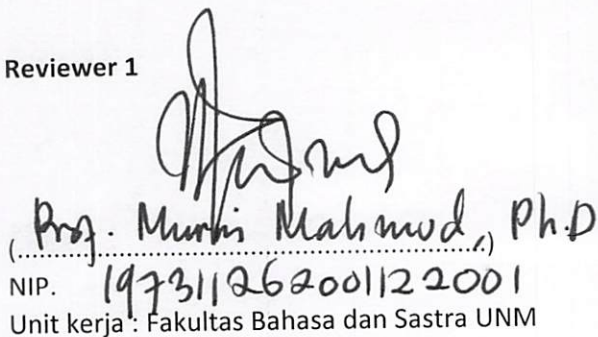 Reviewer 1
(Prof. Murni Mahmud,) Ph.D
NIP. 197311262001122001
Unit kerja : Fakultas Bahasa dan Sastra UNM